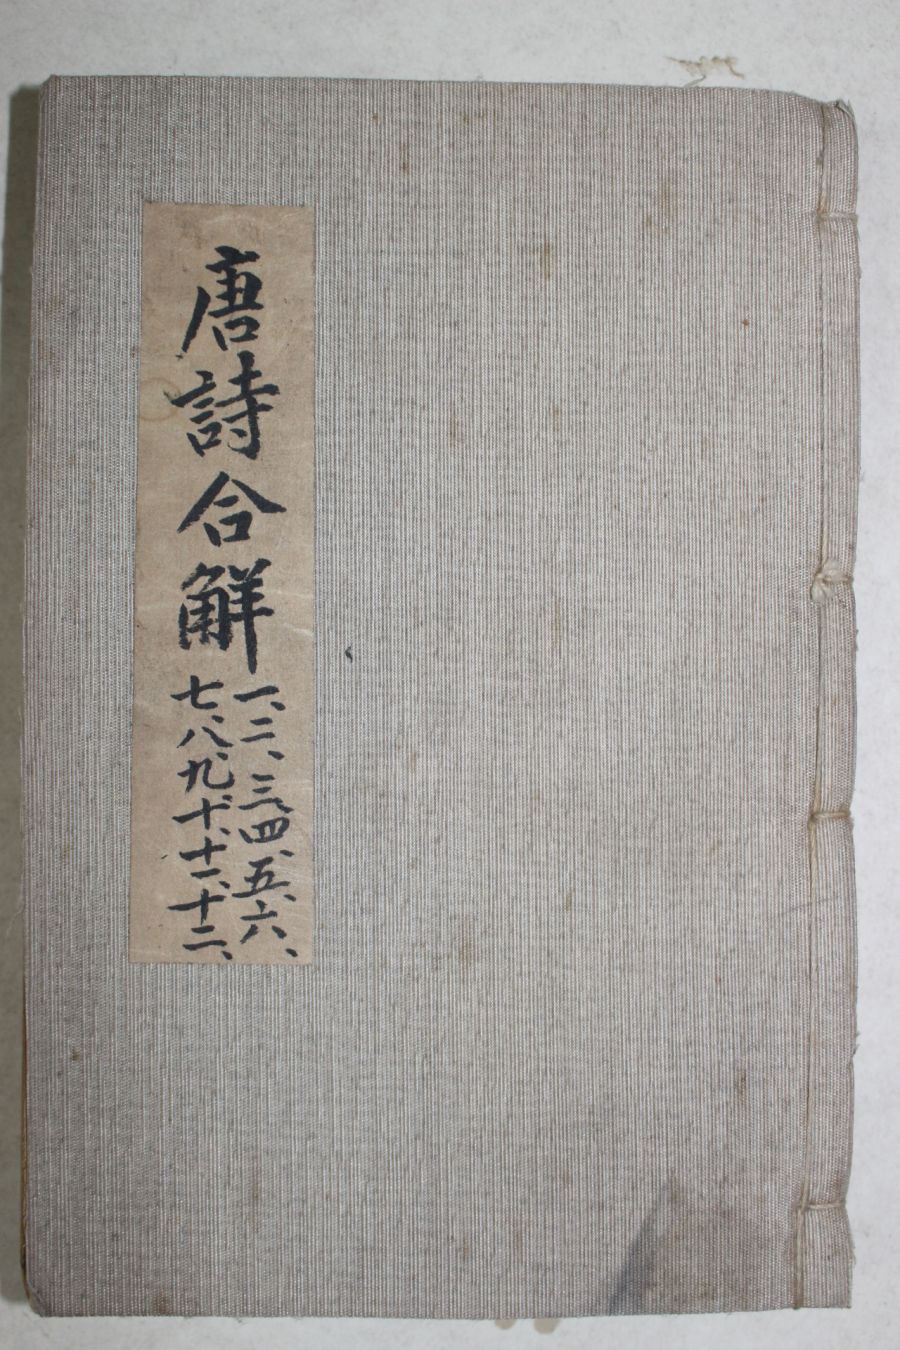 唐詩合解
一、二、三、四、五、六、
七、八、九、十、十一、十二、